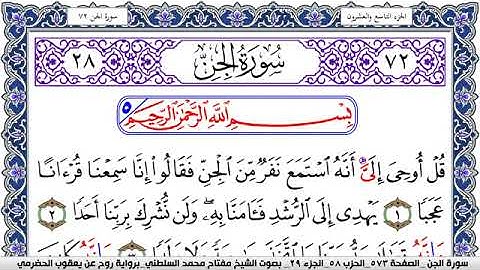 سورة الجن ٧٢
الجزء التاسع والعشرون
٢٨
سُورَةُ الجِنِّ
٧٢
بِسْمِ اللَّهِ الرَّحْمَٰنِ الرَّحِيمِ
قُلْ أُوحِىَ إِلَىَّ أَنَّهُ ٱسْتَمَعَ نَفَرٌ مِّنَ ٱلْجِنِّ فَقَالُوٓا۟ إِنَّا سَمِعْنَا قُرْءَانًا
عَجَبًا ١ يَهْدِىٓ إِلَى ٱلرُّشْدِ فَـَٔامَنَّا بِهِۦ وَلَن نُّشْرِكَ بِرَبِّنَآ أَحَدًا ٢
سورة الجن .. الصفحة ٥٧٣ .. الحزب ٥٨ .. الجزء ٢٩ .. بصوت الشيخ مفتاح محمد السلطني .. برواية روح عن يعقوب الحضرمي